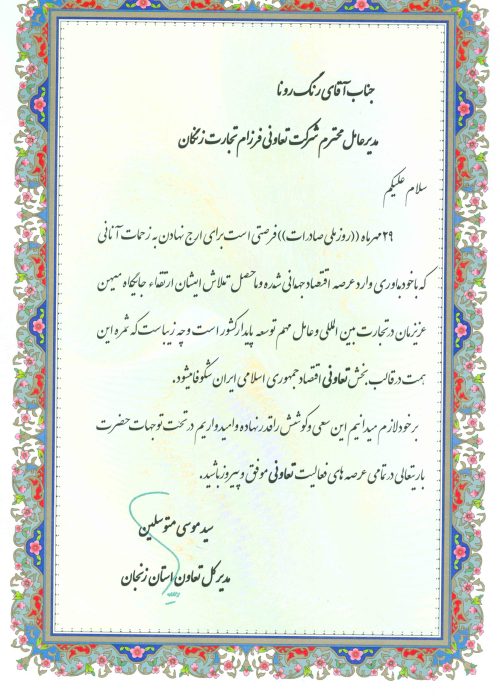 جناب آقای رنگ رونا
مدیرعامل محترم شرکت تعاونی فرزام تجارت زنجان
سلام علیکم
۲۹مهرماه ((روز ملی صادرات)) فرصتی است برای ارج نهادن به زحمات آنانی
که باخودباوری وارد عرصه اقتصاد جهانی شده وماحصل تلاش ایشان ارتقاء جایگاه میهن
عزیزمان درتجارت بین المللی وعامل مهم توسعه پایدارکشور است وچه زیباست که ثمره این
همت درقالب بخش تعاونی اقتصاد جمهوری اسلامی ایران شکوفا میشود.
برخودلازم میدانیم این سعی وکوشش راقدر نهاده وامیدواریم در تحت توجهات حضرت
باریتعالی در تمامی عرصه های فعالیت تعاونی موفق و پیروز باشید.
سید موسی متوسلین
مدیر کل تعاون استان زنجان